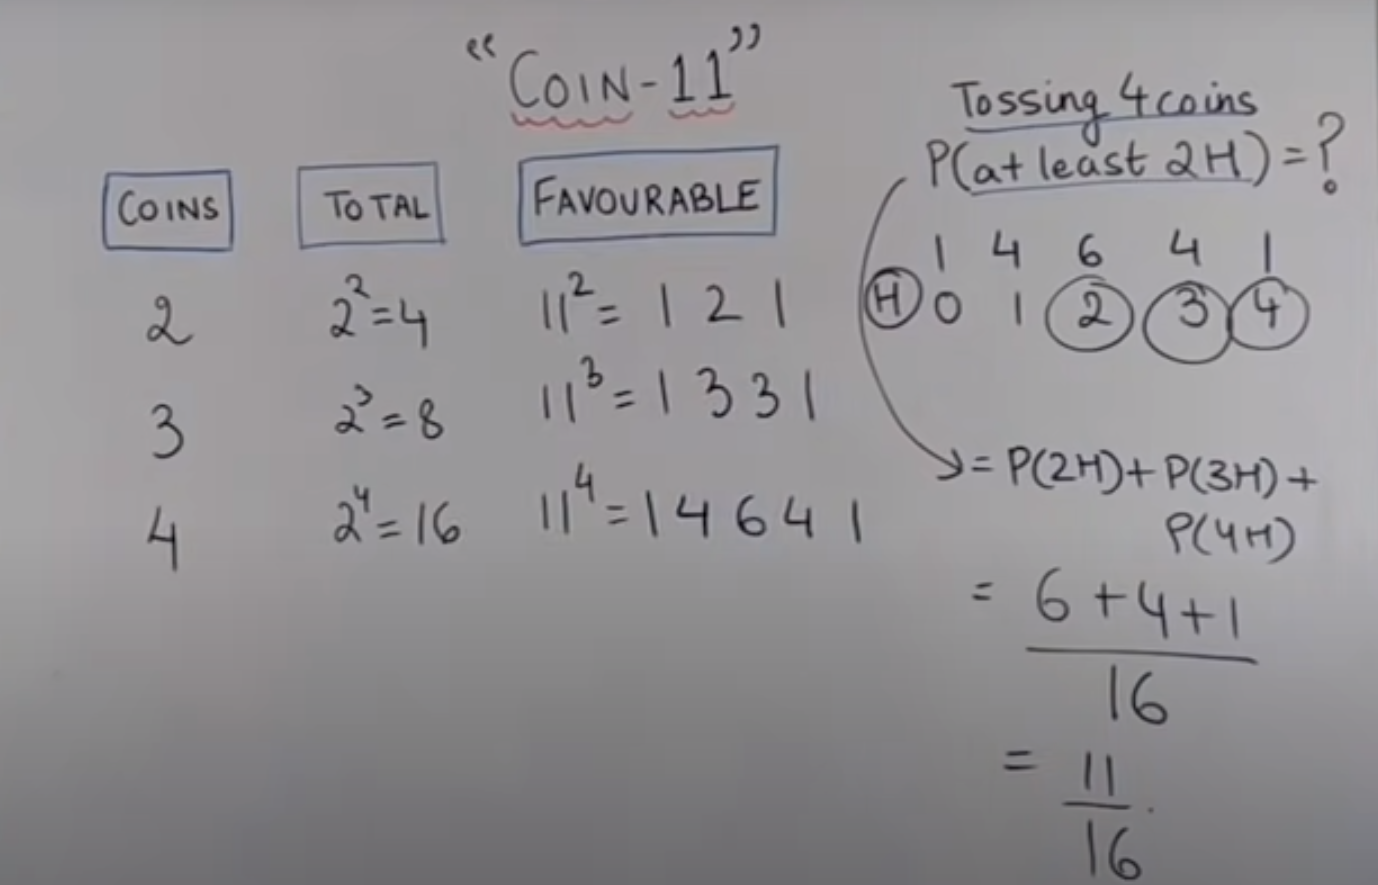 “COIN-11”
COINS TOTAL FAVOURABLE
2 2²=4 11²= 1 2 1
3 2³=8 11³= 1 3 3 1
4 2⁴=16 11⁴=1 4 6 4 1
Tossing 4 coins
P(at least 2H)=?
1 4 6 4 1
H 0 1 2 3 4
= P(2H)+P(3H)+
P(4H)
= 6+4+1
16
= 11
16.